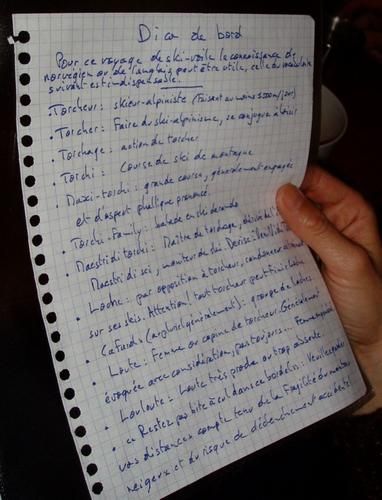 Dico de bord
Pour ce voyage de ski-voile la connaissance du
norvégien ou de l'anglais peut être utile, celle du vocabulaire
suivant est indispensable.
• Torcheur: skieur-alpiniste (faisant au moins 1000m/jour)
• Torcher: Faire du ski-alpinisme, se conjugue à loisir
• Torchage: action de torcher
• Torchi: Course de ski de montagne
• Maxi-torchi: grande course, généralement engagée
et d'aspect phallique prononcé.
• Torchi-Family: balade en ski de rando
• Maestri di torchi: Maître de torchage, dérivé du
Maestri di sci, moniteur de
• Loche: par opposition à torcheur, randonneur
sur ses skis. Attention! tout torcheur peut finir loche
• Cafards (au pluriel généralement): groupe de loches.
• Loute: Femme ou copine de torcheur. Généralement
évoquée avec considération, pas toujours... Femme
• Louloute: Loute très proche ou trop absente.
• « Restez pas bite à cul dans ce bordel »: Veuillez garder
vos distances compte tenu de la fragilité du manteau
neigeux et du risque de déclenchement accidentel